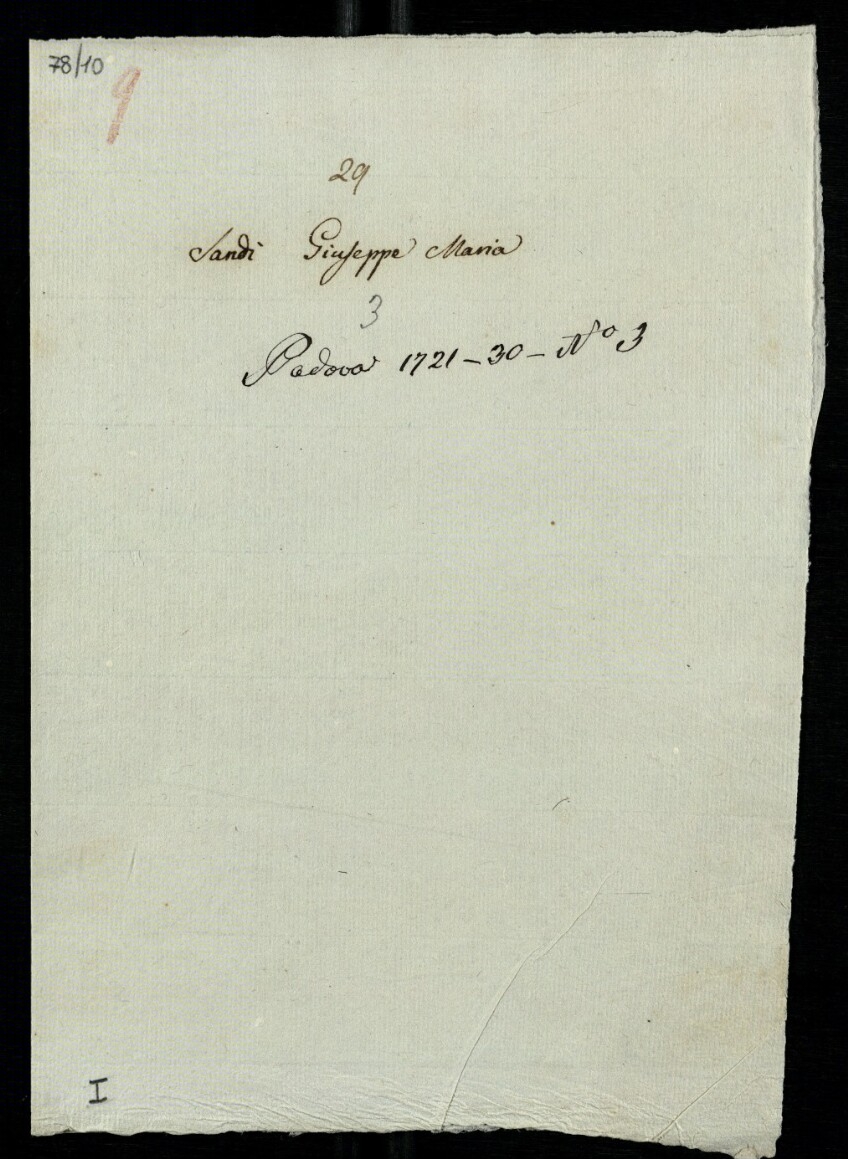 78/10
9
29
Sandi Giuseppe Maria
3
Padova 1721-30- No 3
I